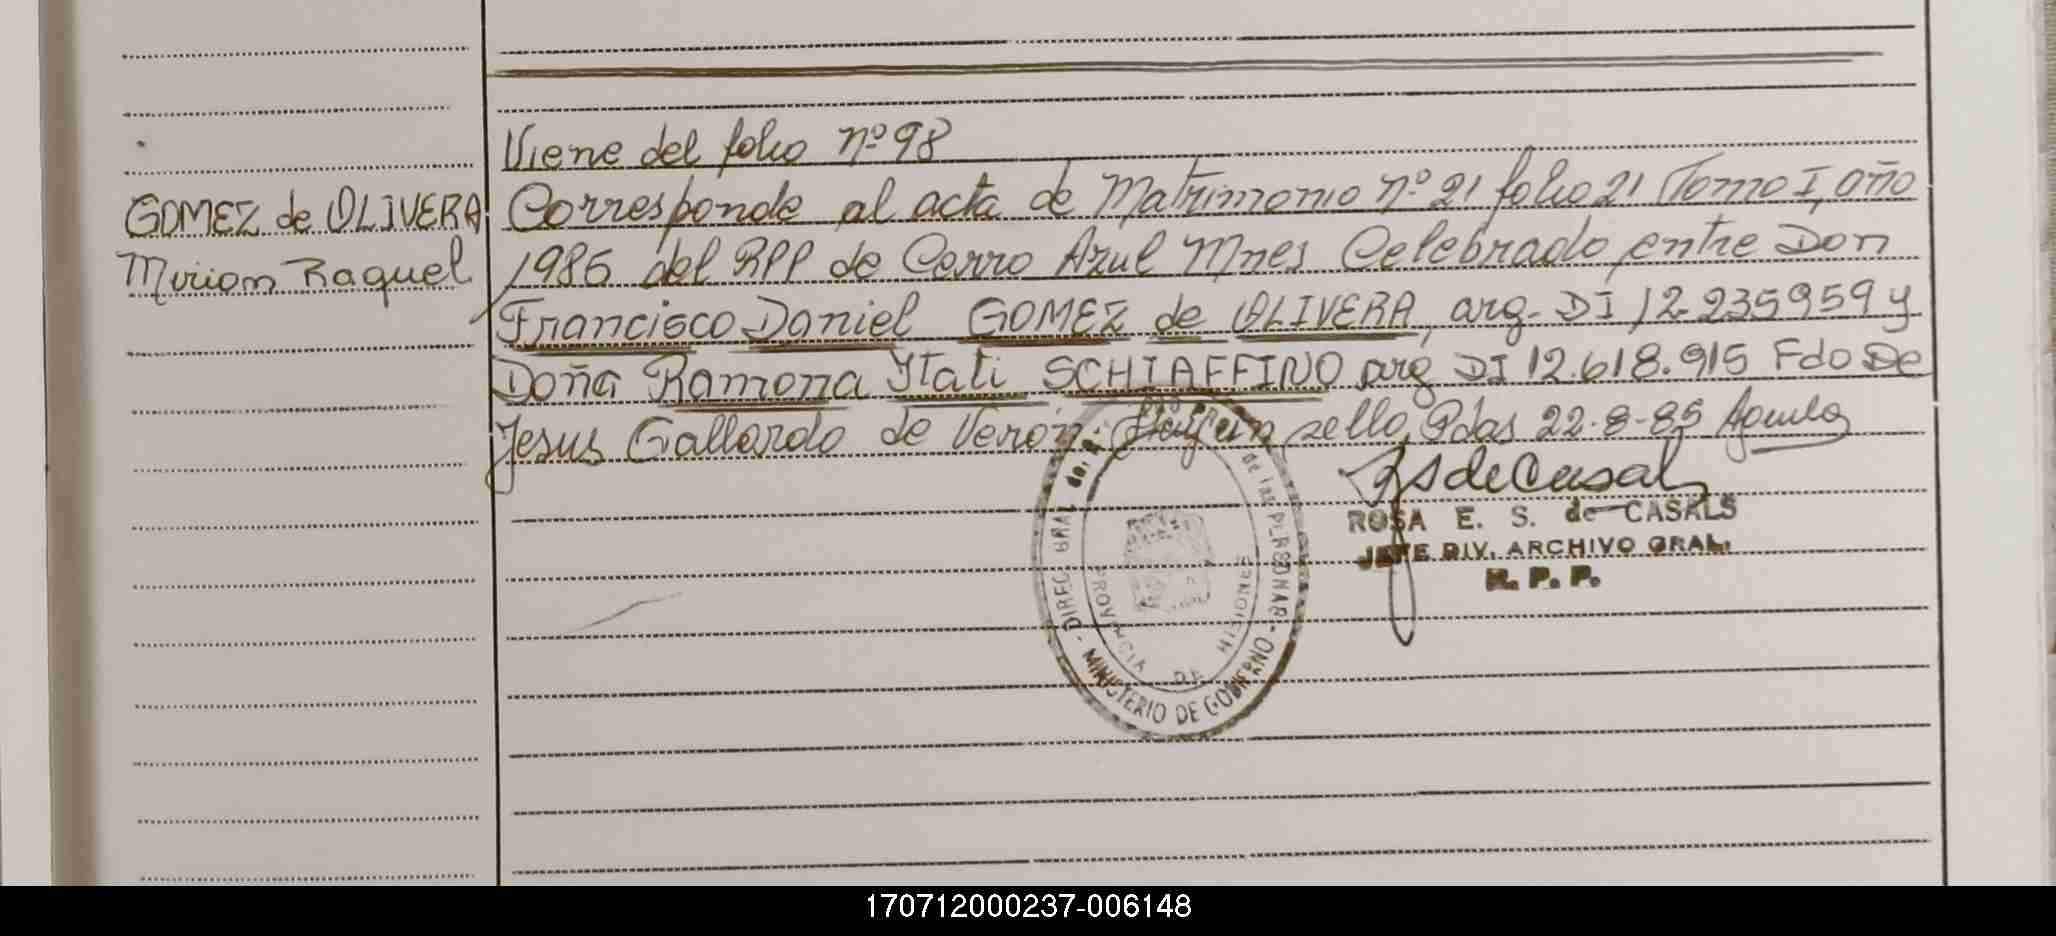 Viene del folio nº 98
GOMEZ de OLIVERA
Mirian Raquel
Corresponde al acta de Matrimonio nº 21 folio 21 Tomo I, año
1985 del RPP de Cerro Azul Mnes Celebrado entre Don
Francisco Daniel GOMEZ de OLIVERA, arg. DI 12.235959 y
Doña Ramona Itati SCHIAFFINO arg DI 12.618.915 Fdo De
Jesus Gallardo de Veron. Hay un sello, Pdas 22-8-85
RSdeCasals
ROSA E. S. de CASALS
JEFE DIV. ARCHIVO GRAL.
R. P. P.
DIREC GRAL del de las PERSONAS
PROVINCIA DE MISIONES
- MINISTERIO DE GOBIERNO -
170712000237-006148